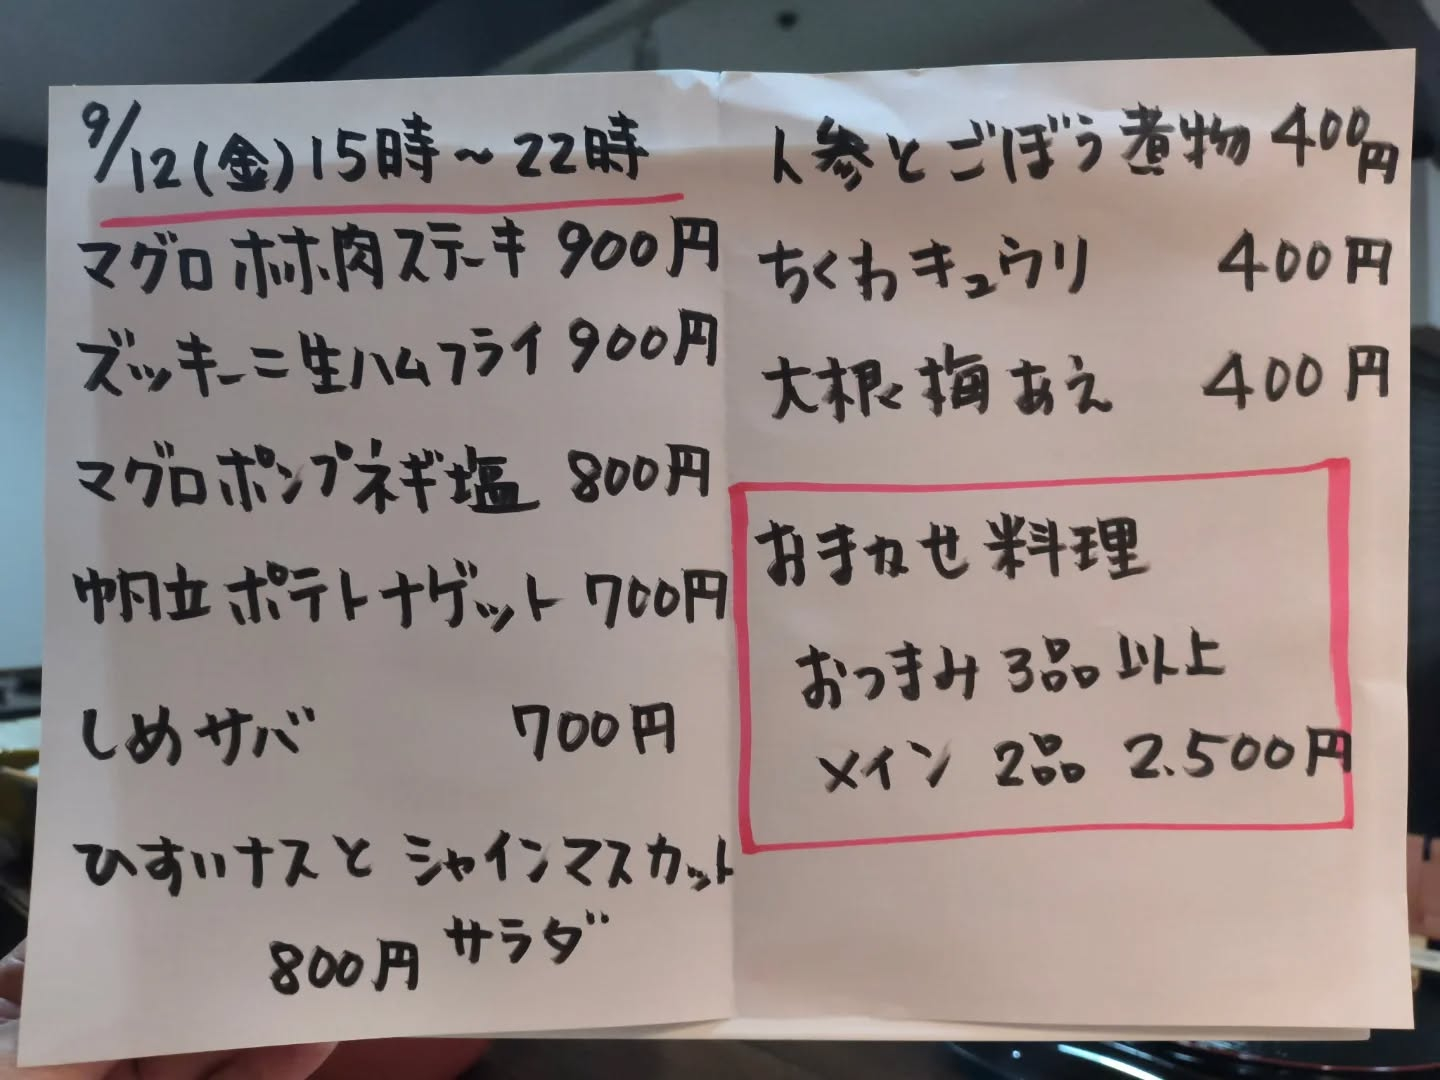 9/12(金)15時~22時
マグロホホ肉ステーキ 900円
ズッキーニ生ハムフライ 900円
マグロポンプネギ塩 800円
帆立ポテトナゲット 700円
しめサバ 700円
ひすいナスとシャインマスカット
サラダ
800円
人参とごぼう煮物 400円
ちくわキュウリ 400円
大根梅あえ 400円
おまかせ料理
おつまみ3品以上
メイン 2品 2.500円